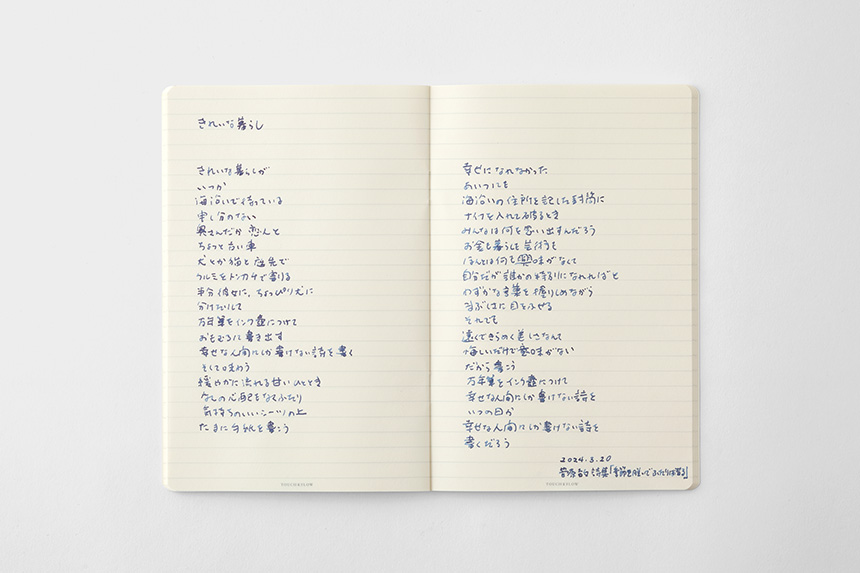 きれいな暮らし
きれいな暮らしが
いつか
海沿いで待っている
申し分のない
奥さんだか恋人と
ちょっと古い車
犬とか猫と庭先で
クルミをトンカチで割る
半分彼女に、ちょっぴり犬に
分けたりして
万年筆をインク壺につけて
おもむろに書き出す
幸せな人間にしか書けない詩を書く
そして味わう
緩やかに流れる甘いひととき
なんの心配をなくふたり
気持ちのいいシーツの上
たまに手紙を書こう
幸せになれなかった
あいつにを
海沿いの住所を記した封筒に
ナイフを入れて破るとき
みんなは何を思い出すんだろう
お金も暮らしも芸術も
ほんとは何も興味がなくて
自分だが誰かの特別になれればと
わずかな言葉を握りしめながら
まぶしさに目をふせる
それでも
遠くできらめく美しさなんて
悔しいだけで意味がない
だから書こう
万年筆をインク壺につけて
幸せな人間にしか書けない詩を
いつの日か
幸せな人間にしか書けない詩を
書くだろう
2024.3.20
菅原敏 詩集「季節を脱いで ふたりは潜る」
TOUCH&FLOW
TOUCH&FLOW